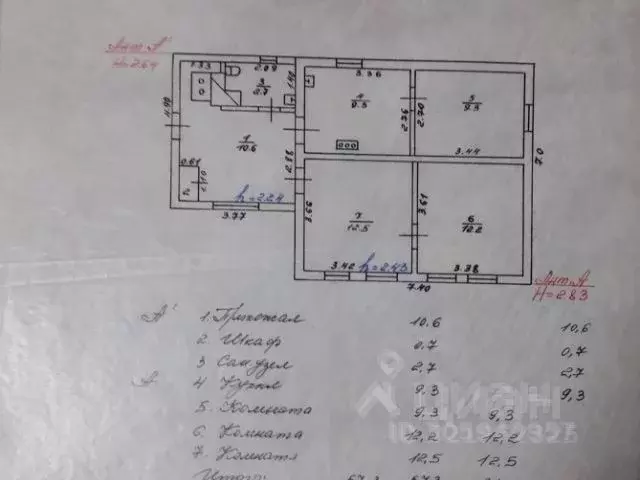 Лит А'
H=2.64
1.33
2.09
3
2.7
1.40
4.90
1
10.6
0.61
1.10
h=2.24
3.77
2.88
3.36
4
9.3
2.76
2.70
5
9.3
3.44
7.0
3.63
7
12.5
3.61
6
12.2
3.42
h=2.43
3.38
7.40
Лит А
H=2.83
А' 1. Прихожая 10,6 10,6
2 Шкаф 0,7 0,7
3 Сан узел 2,7 2,7
А 4 Кухня 9,3 9,3
5. Комната 9,3 9,3
6 Комната 12,2 12,2
7. Комната 12,5 12,5
Итого: 67,3
циан